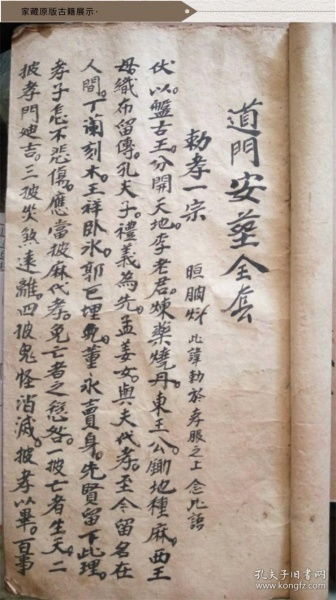 家藏原版古籍展示
道門安葬全套
勅孝一宗
此諱勅於孝服之上念此語
伏以。盤古王。分開天地。李老君。煉藥燒丹。東王公。鋤地種麻。西王
母。織布留傳。孔夫子。禮義為先。孟姜女。與夫代孝。至今留名在
人間。丁蘭刻木。王祥卧氷。郭巨埋兒。董永賣身。先賢留下此理。
孝子怎不悲傷。應當披麻代孝。免亡者之愆咎。一披亡者生天。二
披孝門迪吉。三披災煞遠離。四披鬼怪消滅。披孝以畢。百事
孔夫子旧书网
www.kongfz.com